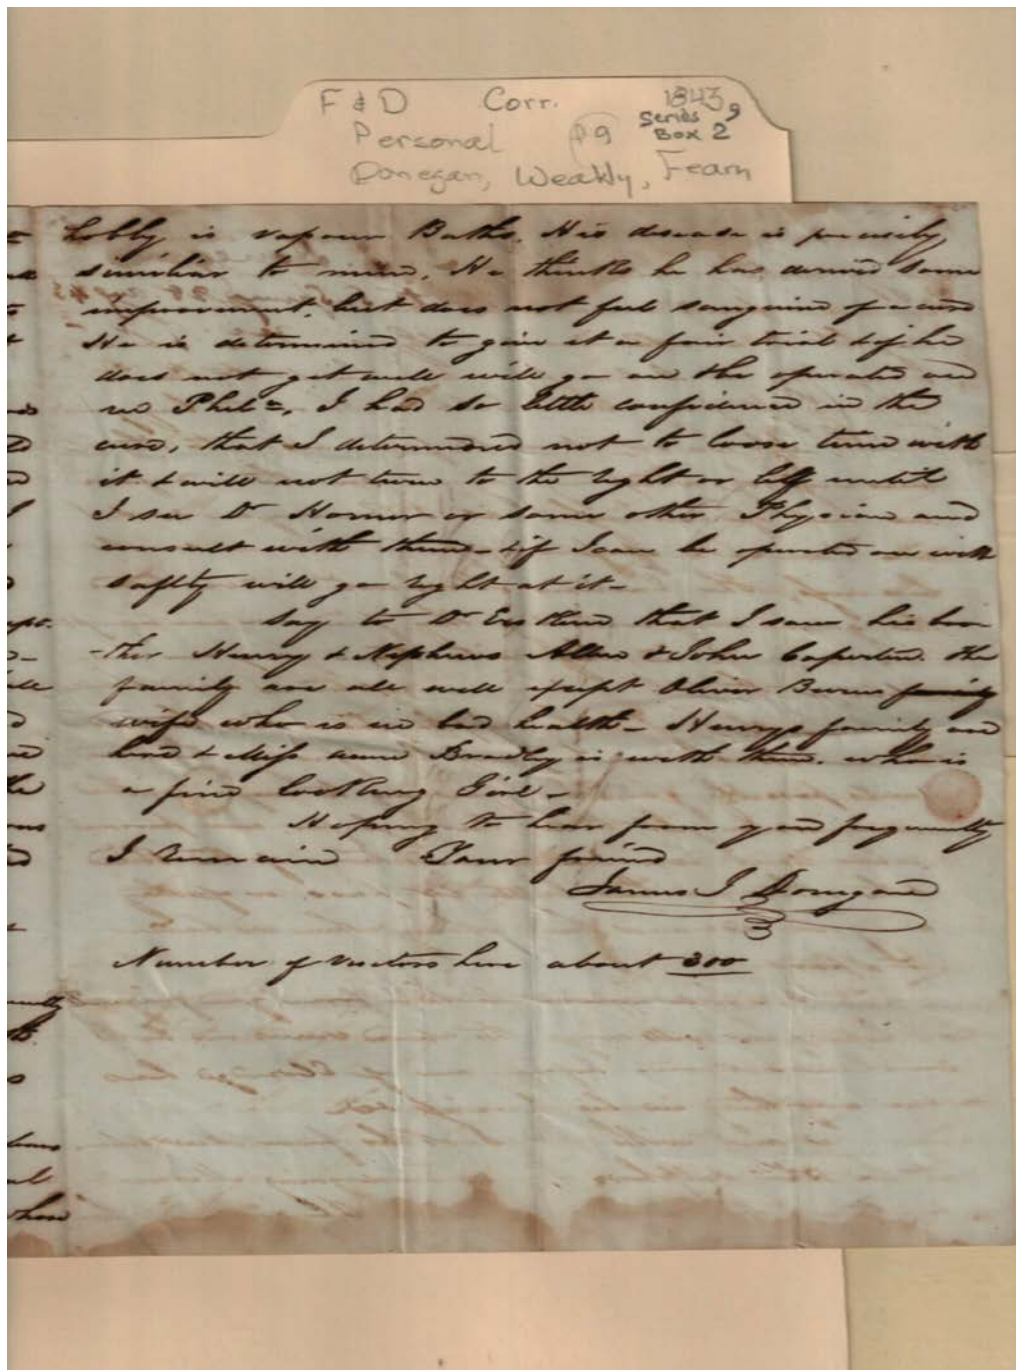 F & D Corr. 1843
Series 9
Personal P9 Box 2
Donegan, Weakly, Fearn
hobby is vapour Baths. His disease is precisely
similiar to mine. He thinks he has derived some
improvement, but does not feel sanguine of a cure
He is determined to give it a fair trial & if he
does not get well will go and be operated on
in Phila. I had so little confidence in the
cure, that I determined not to loose time with
it & will not turn to the right or left until
I see Dr Horner or some other Physician and
consult with them - & if I can be operated on with
safety will go right at it -
Say to Dr that I saw his bro
-ther Henry & Nephews Allen & John Caperton. the
family are all well except Oliver Bierne family
wife who is in bad health - Henrys family are
here & Miss Ann Bradley is with them. who is
a fine looking Girl -
Hoping to hear from you frequently
I remain Your friend
James J Donegan
Number of visitors here about 300